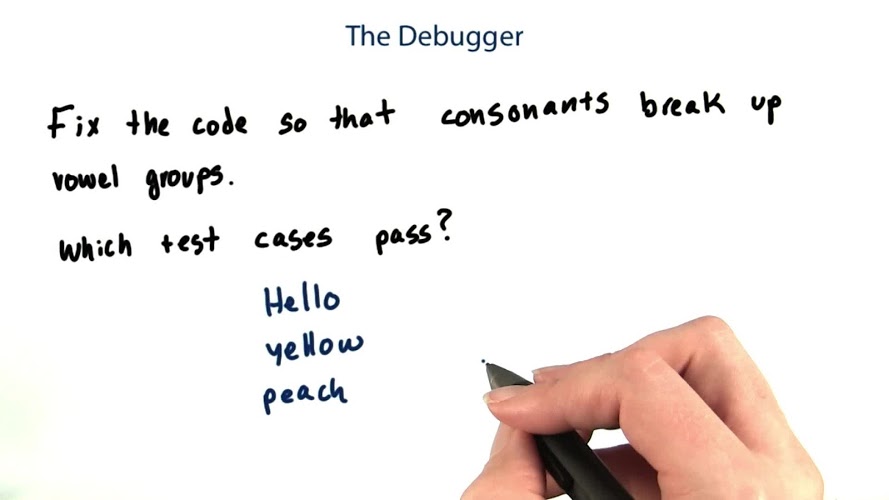 The Debugger
Fix the code so that consonants break up
vowel groups.
Which test cases pass?
Hello
yellow
peach